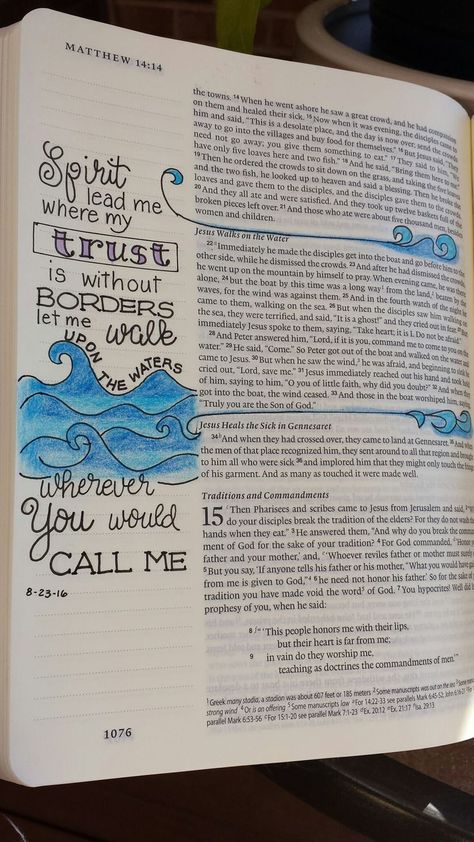 MATTHEW 14:14
Spirit
lead me
where my
trust
is without
BORDERS
let me walk
UPON THE WATERS
wherever
You would
CALL ME
8-23-16
1076
the towns. 14 When he went ashore he saw a great crowd, and he had compassion
on them and healed their sick. 15 Now when it was evening, the disciples came to
him and said, "This is a desolate place, and the day is now over; send the crowds
away to go into the villages and buy food for themselves." 16 But Jesus said, "They
need not go away; you give them something to eat." 17 They said to him, "We
have only five loaves here and two fish." 18 And he said, "Bring them here to me."
19 Then he ordered the crowds to sit down on the grass, and taking the five loaves
and the two fish, he looked up to heaven and said a blessing. Then he broke the
loaves and gave them to the disciples, and the disciples gave them to the crowds.
20 And they all ate and were satisfied. And they took up twelve baskets full of the
broken pieces left over. 21 And those who ate were about five thousand men, besides
women and children.
Jesus Walks on the Water
22 Immediately he made the disciples get into the boat and go before him to the
other side, while he dismissed the crowds. 23 And after he had dismissed the crowds,
he went up on the mountain by himself to pray. When evening came, he was there
alone, 24 but the boat by this time was a long way from the land, beaten by the
waves, for the wind was against them. 25 And in the fourth watch of the night he
came to them, walking on the sea. 26 But when the disciples saw him walking on
the sea, they were terrified, and said, "It is a ghost!" and they cried out in fear. 27 But
immediately Jesus spoke to them, saying, "Take heart; it is I. Do not be afraid."
28 And Peter answered him, "Lord, if it is you, command me to come to you on the
water." 29 He said, "Come." So Peter got out of the boat and walked on the water and
came to Jesus. 30 But when he saw the wind, he was afraid, and beginning to sink he
cried out, "Lord, save me." 31 Jesus immediately reached out his hand and took hold
of him, saying to him, "O you of little faith, why did you doubt?" 32 And when they
got into the boat, the wind ceased. 33 And those in the boat worshiped him, saying,
"Truly you are the Son of God."
Jesus Heals the Sick in Gennesaret
34 And when they had crossed over, they came to land at Gennesaret. 35 And when
the men of that place recognized him, they sent around to all that region and brought
to him all who were sick 36 and implored him that they might only touch the fringe
of his garment. And as many as touched it were made well.
Traditions and Commandments
15 Then Pharisees and scribes came to Jesus from Jerusalem and said, 2 "Why
do your disciples break the tradition of the elders? For they do not wash their
hands when they eat." 3 He answered them, "And why do you break the command-
ment of God for the sake of your tradition? 4 For God commanded, 'Honor your
father and your mother,' and, 'Whoever reviles father or mother must surely die.'
5 But you say, 'If anyone tells his father or his mother, "What you would have gained
from me is given to God," 6 he need not honor his father.' So for the sake of your
tradition you have made void the word of God. 7 You hypocrites! Well did Isaiah
prophesy of you, when he said:
8 "'This people honors me with their lips,
but their heart is far from me;
9 in vain do they worship me,
teaching as doctrines the commandments of men.'"
1 Greek many stadia, a stadion was about 607 feet or 185 meters 2 Some manuscripts was out on the sea 3 Some manuscripts
strong wind 4 Or is an offering 5 Some manuscripts law For 14:22-33 see parallels Mark 6:45-52; John 6:16-21
parallel Mark 6:53-56 For 15:1-20 see parallel Mark 7:1-23 Ex. 20:12 Ex. 21:17 Isa. 29:13